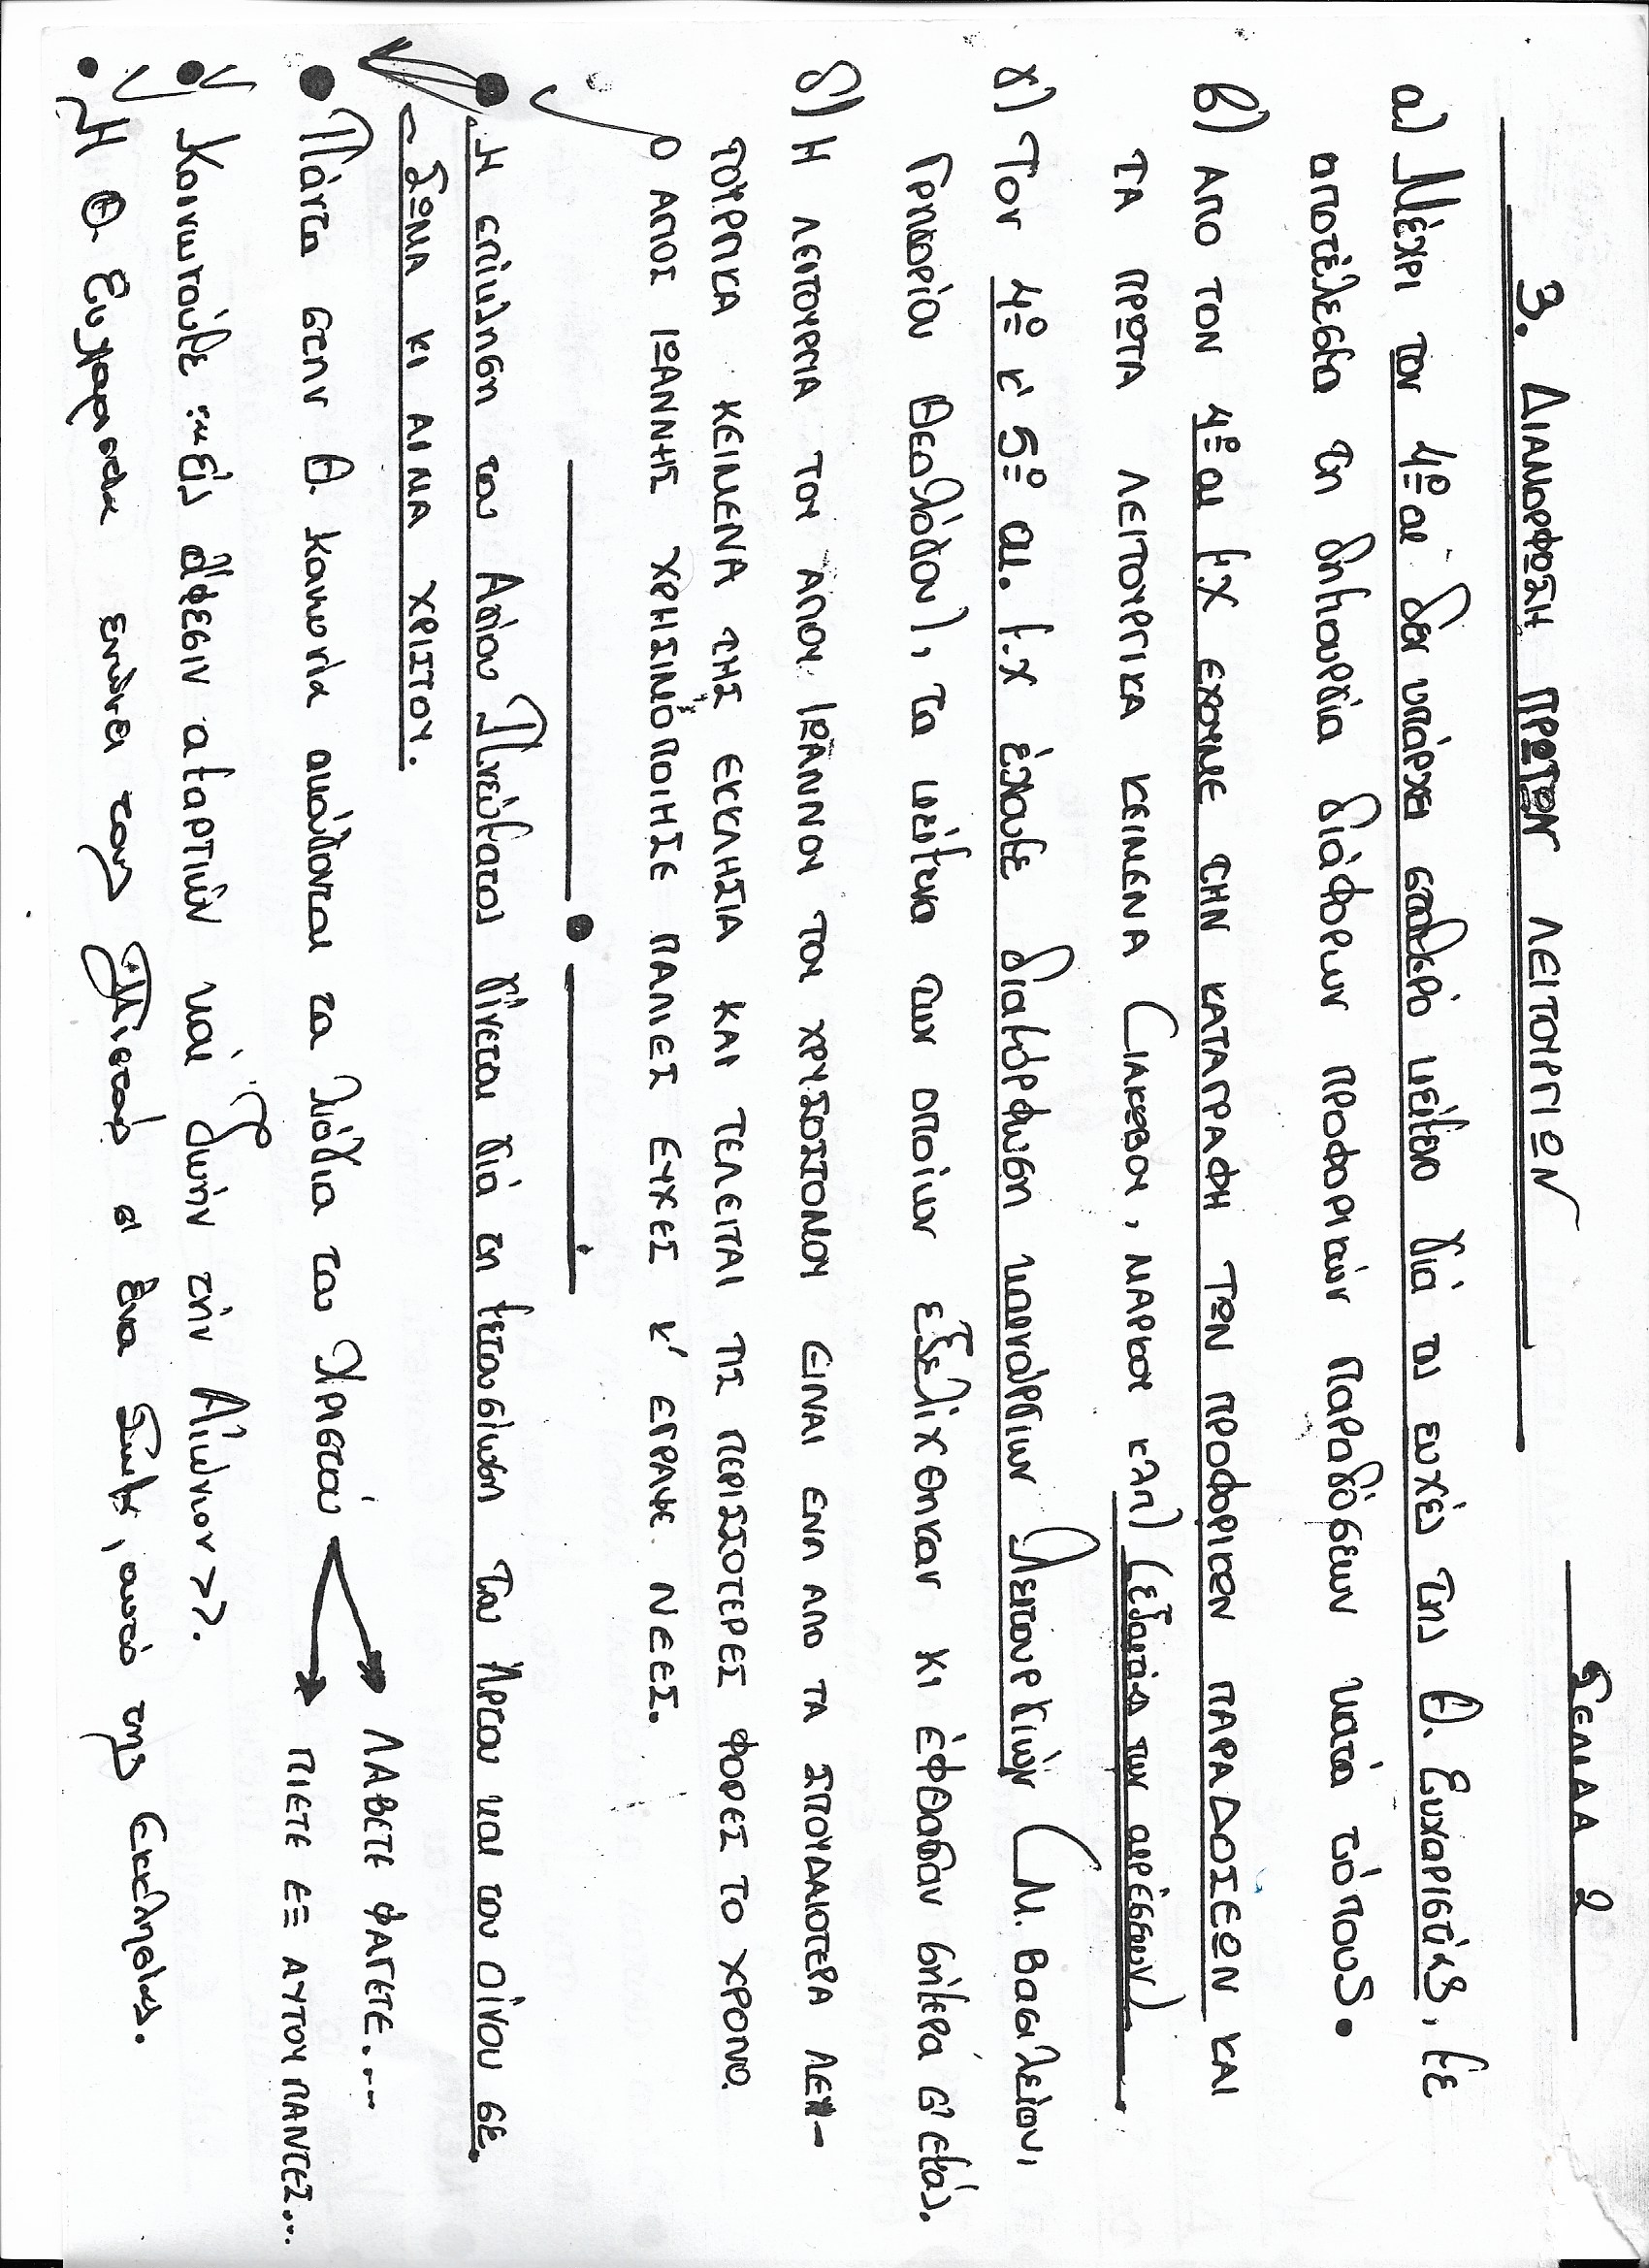 ΣΕΛΙΔΑ 2
3. ΔΙΑΜΟΡΦΩΣΗ ΠΡΩΤΩΝ ΛΕΙΤΟΥΡΓΙΩΝ
α) Μέχρι τον 4ο αι δεν υπάρχει σταθερό κείμενο γιά τις ευχές της Θ. Ευχαριστίας, με
αποτέλεσμα τη δημιουργία διάφορων προφορικών παραδόσεων κατά τόπους.
β) ΑΠΟ ΤΟΝ 4ο αι μ.Χ ΕΧΟΥΜΕ ΤΗΝ ΚΑΤΑΓΡΑΦΗ ΤΩΝ ΠΡΟΦΟΡΙΚΩΝ ΠΑΡΑΔΟΣΕΩΝ ΚΑΙ
ΤΑ ΠΡΩΤΑ ΛΕΙΤΟΥΡΓΙΚΑ ΚΕΙΜΕΝΑ (ΙΑΚΩΒΟΥ, ΜΑΡΚΟΥ κλπ) (εξαιτίας των αιρέσεων).
γ) Τον 4ο κ' 5ο αι. μ.Χ έχουμε διαμόρφωση καινούργιων λειτουργιών (Μ. Βασιλείου,
Γρηγορίου Θεολόγου), τα κείμενα των οποίων εξελίχθηκαν κι έφθασαν σήμερα σ' εμάς.
δ) Η ΛΕΙΤΟΥΡΓΙΑ ΤΟΥ ΑΓΙΟΥ ΙΩΑΝΝΟΥ ΤΟΥ ΧΡΥΣΟΣΤΟΜΟΥ ΕΙΝΑΙ ΕΝΑ ΑΠΟ ΤΑ ΣΠΟΥΔΑΙΟΤΕΡΑ ΛΕΙ-
ΤΟΥΡΓΙΚΑ ΚΕΙΜΕΝΑ ΤΗΣ ΕΚΚΛΗΣΙΑ ΚΑΙ ΤΕΛΕΙΤΑΙ ΤΙΣ ΠΕΡΙΣΣΟΤΕΡΕΣ ΦΟΡΕΣ ΤΟ ΧΡΟΝΟ.
Ο ΑΓΙΟΣ ΙΩΑΝΝΗΣ ΧΡΗΣΙΜΟΠΟΙΗΣΕ ΠΑΛΙΕΣ ΕΥΧΕΣ Κ' ΕΓΡΑΨΕ ΝΕΕΣ.
• Η επίκληση του Αγίου Πνεύματος γίνεται γιά τη μετουσίωση του Άρτου και του οίνου σε
ΣΩΜΑ ΚΙ ΑΙΜΑ ΧΡΙΣΤΟΥ.
• Πάντα στην Θ. κοινωνία ακούγονται τα λόγια του Χριστού
ΛΑΒΕΤΕ ΦΑΓΕΤΕ...
ΠΙΕΤΕ ΕΞ ΑΥΤΟΥ ΠΑΝΤΕΣ...
• Κοινωνούμε :«είς άφεσιν αμαρτιών καί ζωήν τήν Αιώνιον>>.
• Η Θ. Ευχαριστία ενώνει τους Πιστούς σ ένα Σώμα, αυτό της Εκκλησίας.